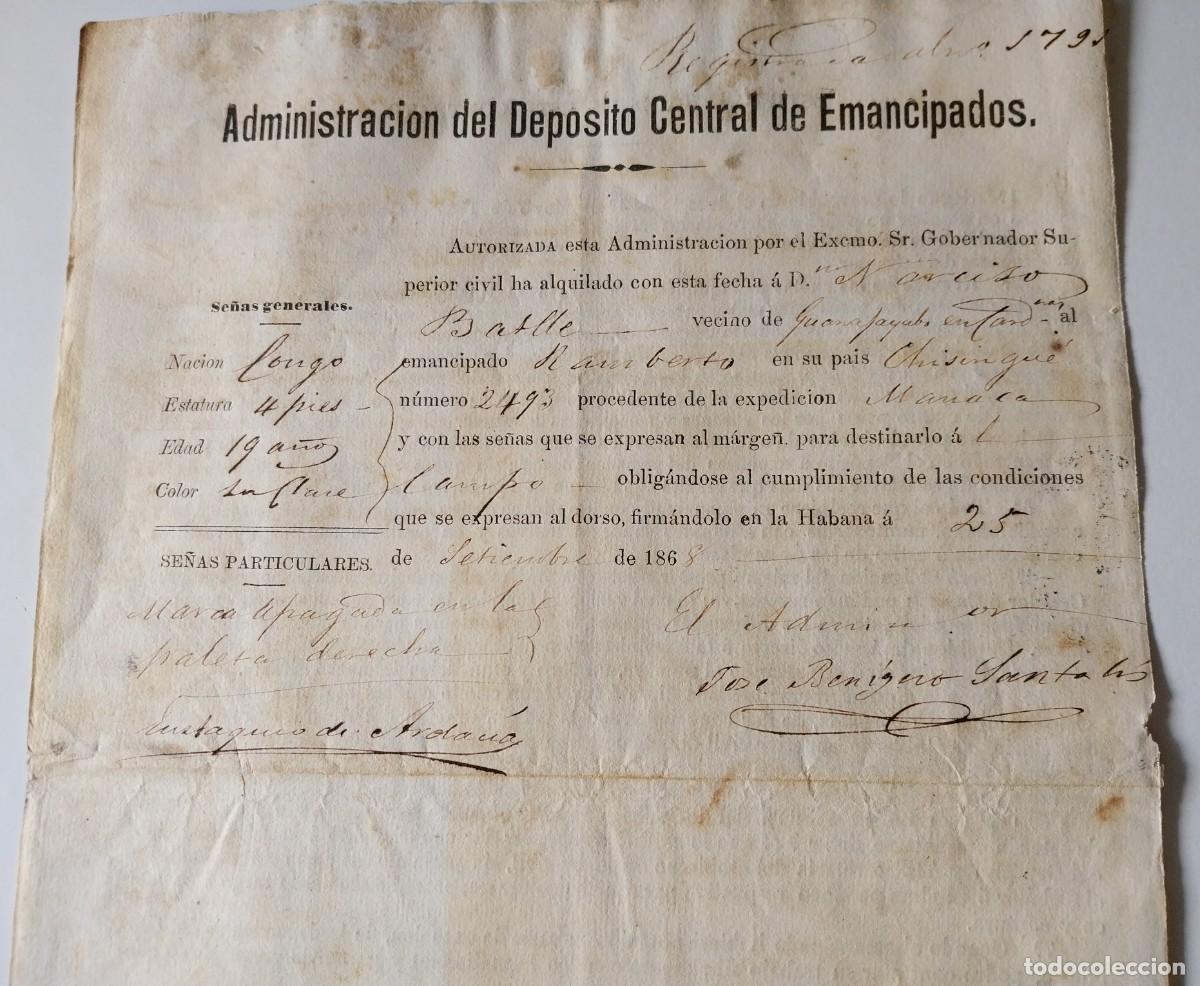 Registrada al nº 1791
Administracion del Deposito Central de Emancipados.
AUTORIZADA esta Administracion por el Excmo. Sr. Gobernador Su-
perior civil ha alquilado con esta fecha á D.n Narciso
Batlle vecino de en al
emancipado Ramberto en su pais Chisingué
número 2493 procedente de la expedicion
y con las señas que se expresan al márgen. para destinarlo á l
Campo obligándose al cumplimiento de las condiciones
que se expresan al dorso, firmándolo en la Habana á 25
de Setiembre de 1868
Señas generales.
Nacion Congo
Estatura 4 pies
Edad 19 años
Color su Clase
SEÑAS PARTICULARES.
Marca apagada en la
paleta derecha
Eustaquio de
El Admin or
Jose Benigno
todocoleccion